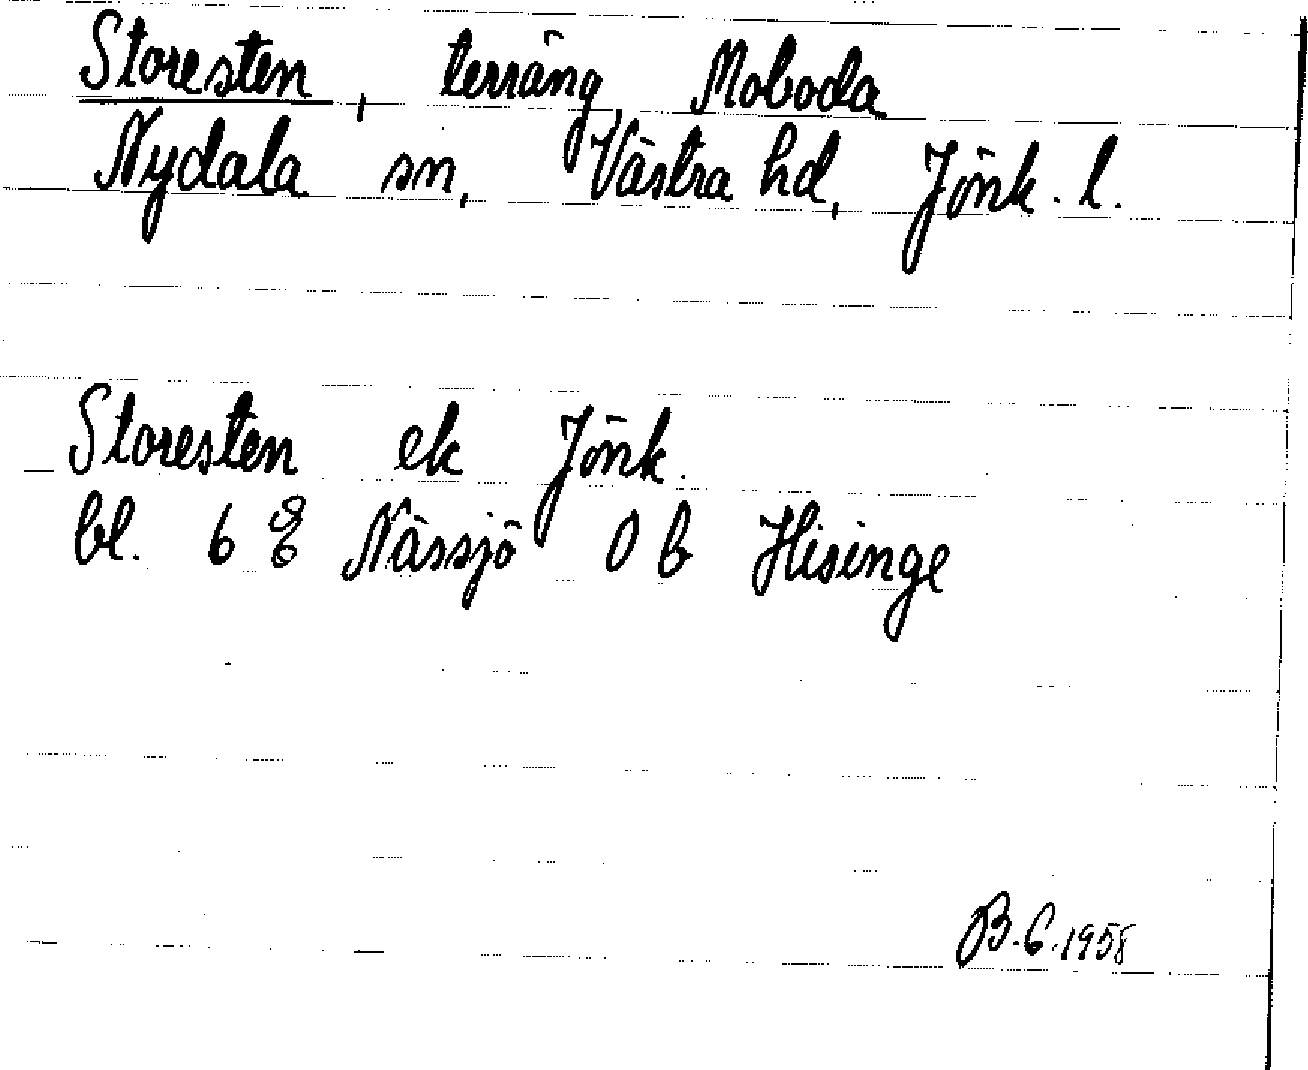 Storesten, terräng, Moboda
Nydala sn, Västra hd, Jönk. l.
Storesten ek Jönk.
bl. 6 Nässjö 0 b Hisinge
B. C. 1958